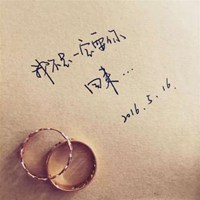 我不是一定要你
回来…
2016.5.16.